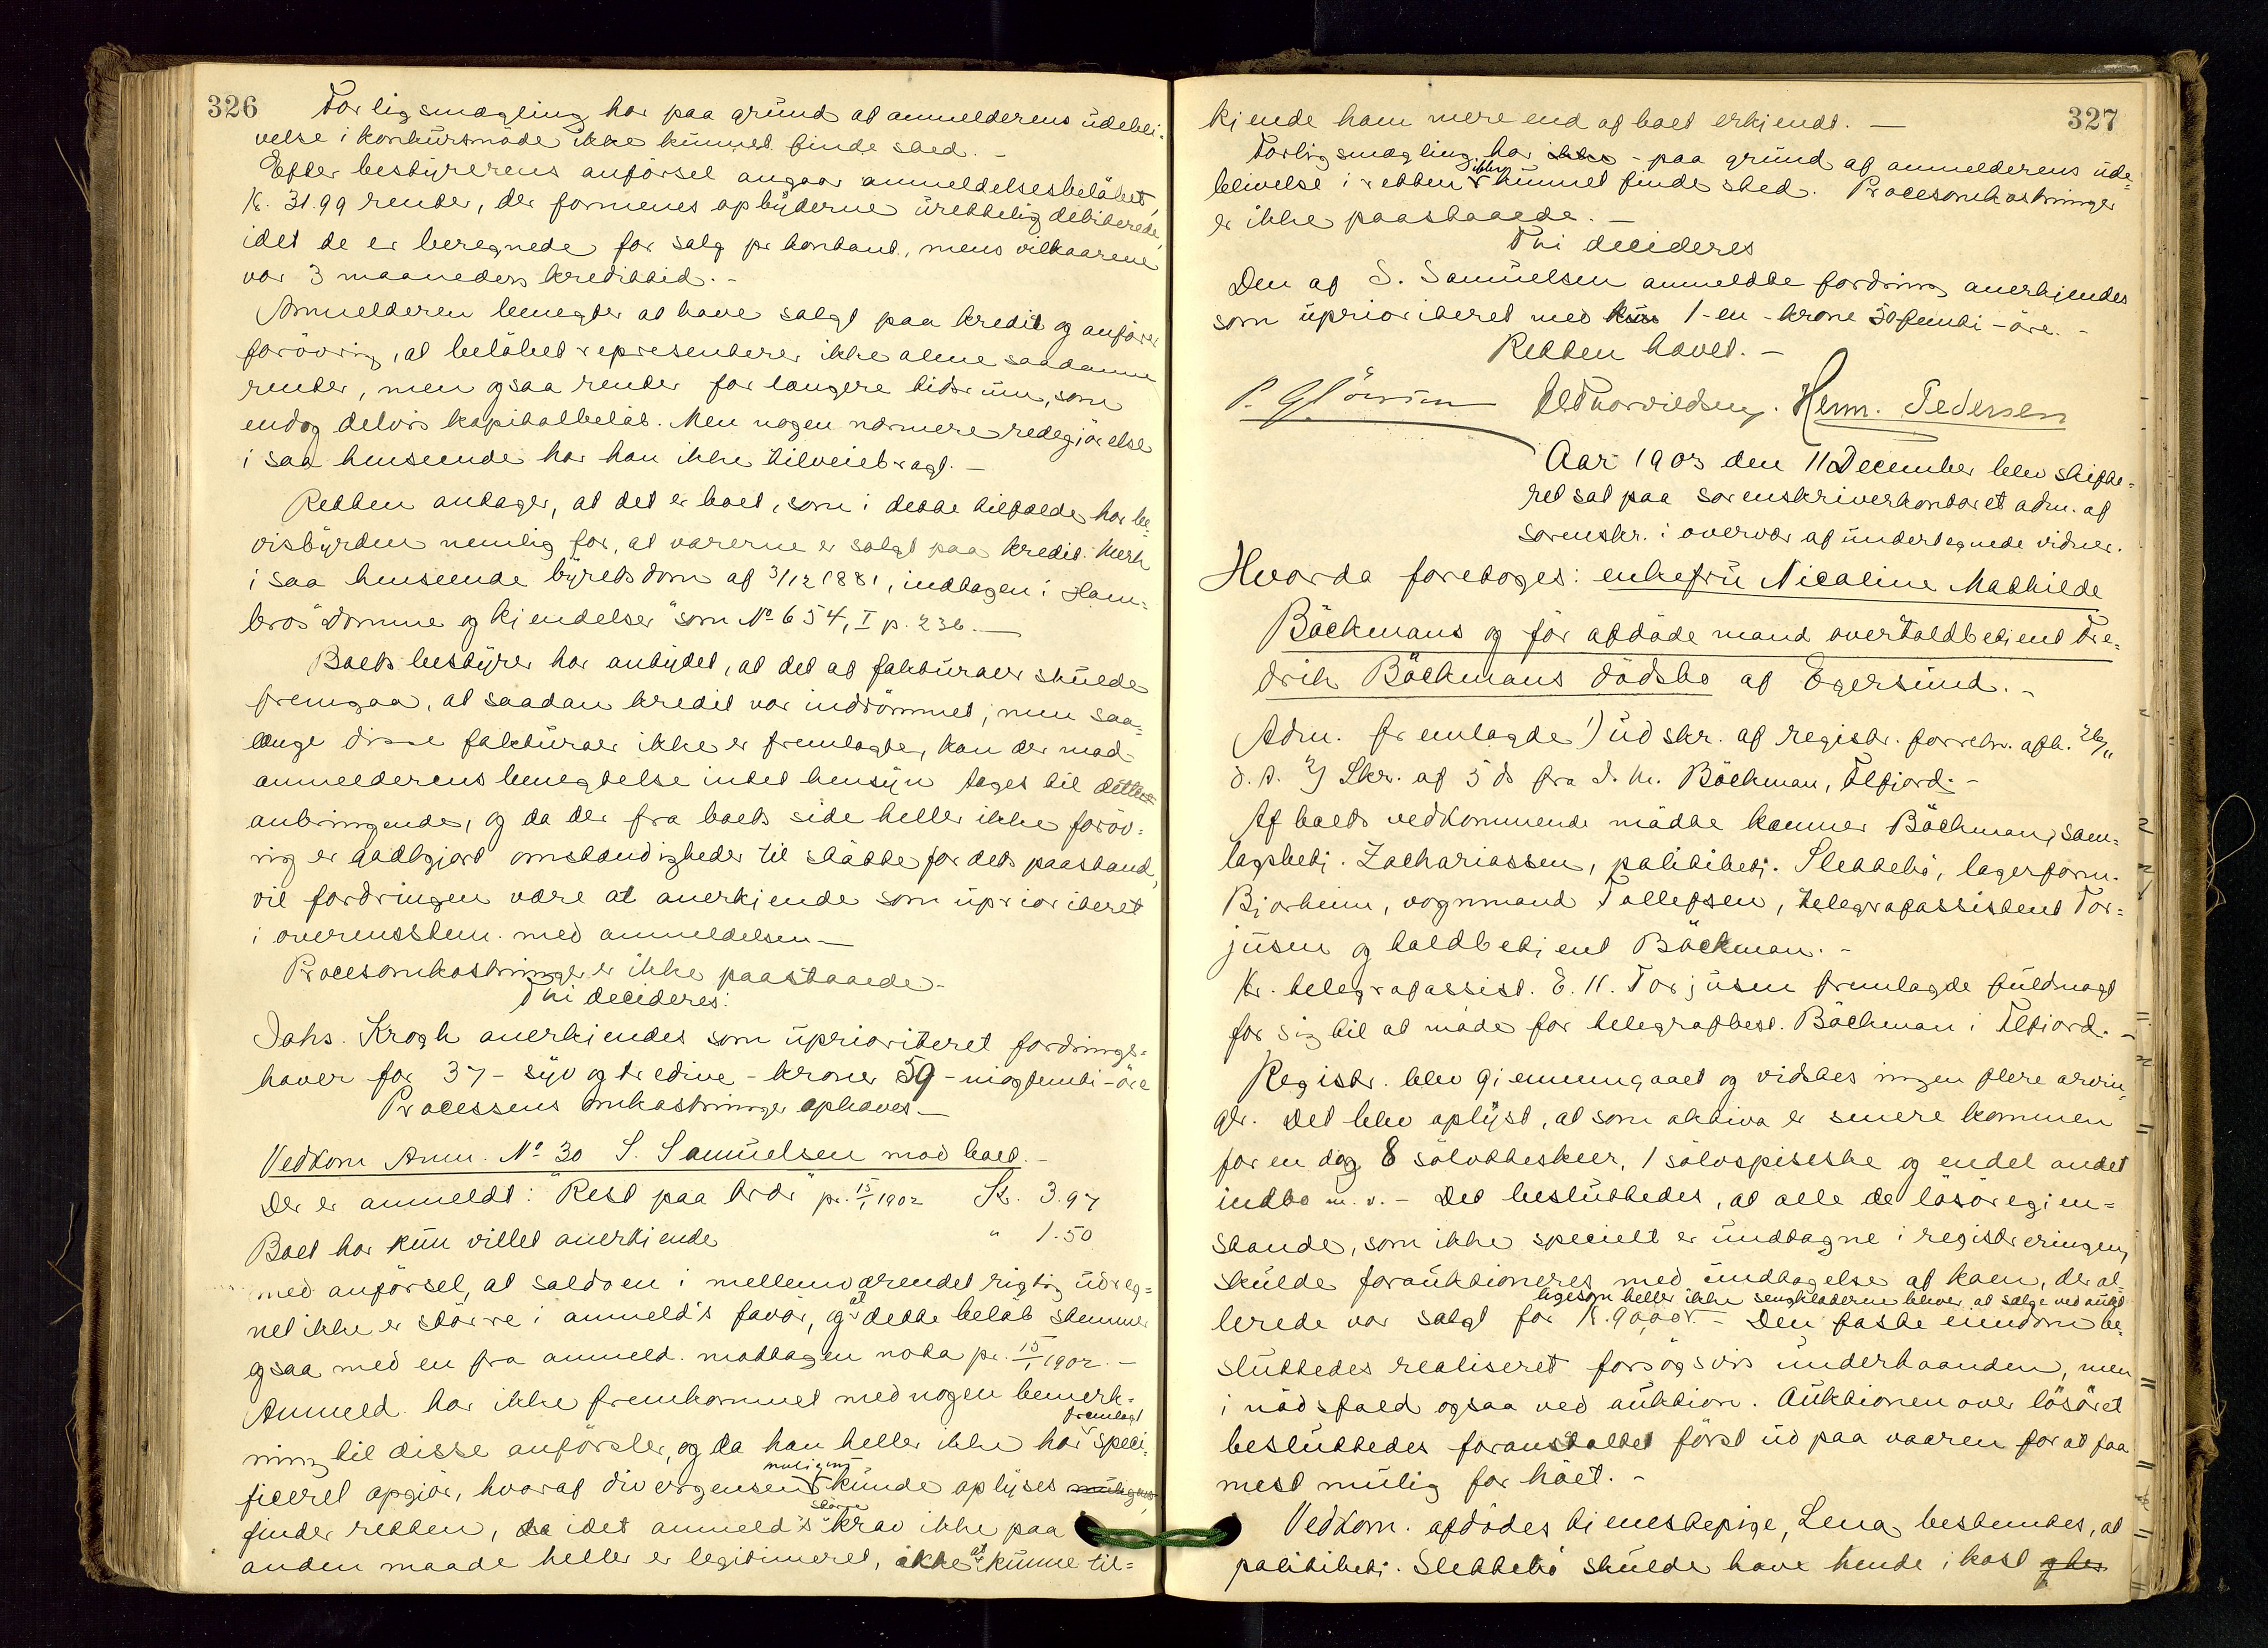 326
Forligsmægling har paa grund af anmelderens udebli-
velse i konkursmöde ikke kunnet finde sted. -
Efter bestyrerens anförsel angaar anmeldelsesbelöbet,
K. 31.99 renter, der formenes opbyderne urettelig debiterede,
idet de er beregnede for salg pr kontant, mens vilkaarene
var 3 maaneders kredittid. -
Anmelderen benegter at have solgt paa kredit og anförer
forövrig, at belöbet representerer ikke alene saadanne
renter, men ogsaa renter for længere tidsrum, som
endog delvis kapitalbelöb. Men nogen nærmere redegjörelse
i saa henseende har han ikke tilveiebragt. -
Retten antager, at det er boet, som i dette tilfælde har be-
visbyrden nemlig for, at varerne er solgt paa kredit. Merk
i saa henseende byretsdom af 3/12 1881, indtagen i Ham-
bros "Domme og kjendelser" som No 654, I p. 236. -
Boets bestyrer har antydet, at det af fakturaer skulde
fremgaa, at saadan kredit var indrömmet; men saa-
længe disse fakturaer ikke er fremlagte, kan der mod
anmelderens benegtelse intet hensyn tages til dette
anbringende, og da der fra boets side heller ikke foröv-
rig er godtgjort omstændigheder til stötte for dets paastand,
vil fordringen være at anerkjende som uprioriteret
i overensstem. med anmeldelsen -
Procesomkostninger er ikke paastaaede -
Thi decideres:
Johs. Krogh anerkjendes som uprioriteret fordrings-
haver for 37 - syv og tredive - kroner 59 - niogfemti - öre
Processens omkostninger ophæves -
Vedkom Anm. No 30 S. Samuelsen mod boet. -
Der er anmeldt: "Rest paa " pr. 15/1 1902 K. 3.97
Boet har kun villet anerkjende " 1.50
med anförsel, at saldoen i mellemværendet rigtig udreg-
net ikke er större i anmeld's favör, og at dette belöb stemmer
ogsaa med en fra anmeld. modtagen nota pr. 15/1 1902. -
Anmeld. har ikke fremkommet med nogen bemerk-
ning til disse anförsler, og da han heller ikke har fremlagt speci-
ficeret opgjör, hvoraf divergensen muligens kunde oplyses muligens,
finder retten, da idet anmeld's större krav ikke paa
anden maade heller er legitimeret, ikke at kunne til-
327
kjende ham mere end af boet erkjendt. -
Forligsmægling har ikke - paa grund af anmelderens ude-
blivelse i retten ikke kunnet finde sted. Procesomkostninger
er ikke paastaaede. -
Thi decideres
Den af S. Samuelsen anmeldte fordring anerkjendes
som uprioriteret med kun 1 - en - krone 50 femti - öre. -
Retten hævet. -
Herm. Pedersen
Aar 1903 den 11 December blev skifte-
ret sat paa sorenskriverkontoret adm. af
sorenskr. i overvær af undertegnede vidner.
Hvorda foretoges: enkefru Nicoline Mathilde
Böckmans og för afdöde mand overtoldbetjent Fre-
drik Böckmans dödsbo af Egersund. -
Adm. fremlagde 1) udskr. af registr. forretn. afh. 26/11
d. A. 2) Skr. af 5 ds fra J. M. Böckman, Elfjord. -
Af boets vedkommende mödte kommer Böckman, sam-
lagsbetj. Zachariassen, politibetj. Slettebö, lagerform.
Bjorheim, vognmand Tollefsen, telegrafassistent Tor-
jusen og toldbetjent Böckman. -
Hr. telegrafassist. E. H. Torjusen fremlagde fuldmagt
for sig til at möde for telegrafbest. Böckman i Elfjord. -
Registr. blev gjennemgaaet og vidstes ingen flere arvin-
ger. Det blev oplyst, at som aktiva er senere kommen
for en dag 8 sölvtheskeer, 1 sölvspiseske og endel andet
indbo m. v. - Det besluttedes, at alle de lösöregjen-
stande, som ikke specielt er undtagne i registreringen,
skulde forauktioneres med undtagelse af koen, der al-
ligesom heller ikke sengklæderne bliver at sælge ved aukt
lerede var solgt for K. 90,00. - Den faste eiendom be-
sluttedes realiseret forsögsvis underhaanden, men
i nödsfald ogsaa ved auktion. Auktionen over lösöret
besluttedes foranstaltet först ud paa vaaren for at faa
mest mulig for höet. -
Vedkom. afdödes tjenestepige, Lena bestemtes, at
politibetj. Slettebö skulde have hende i kost og hus